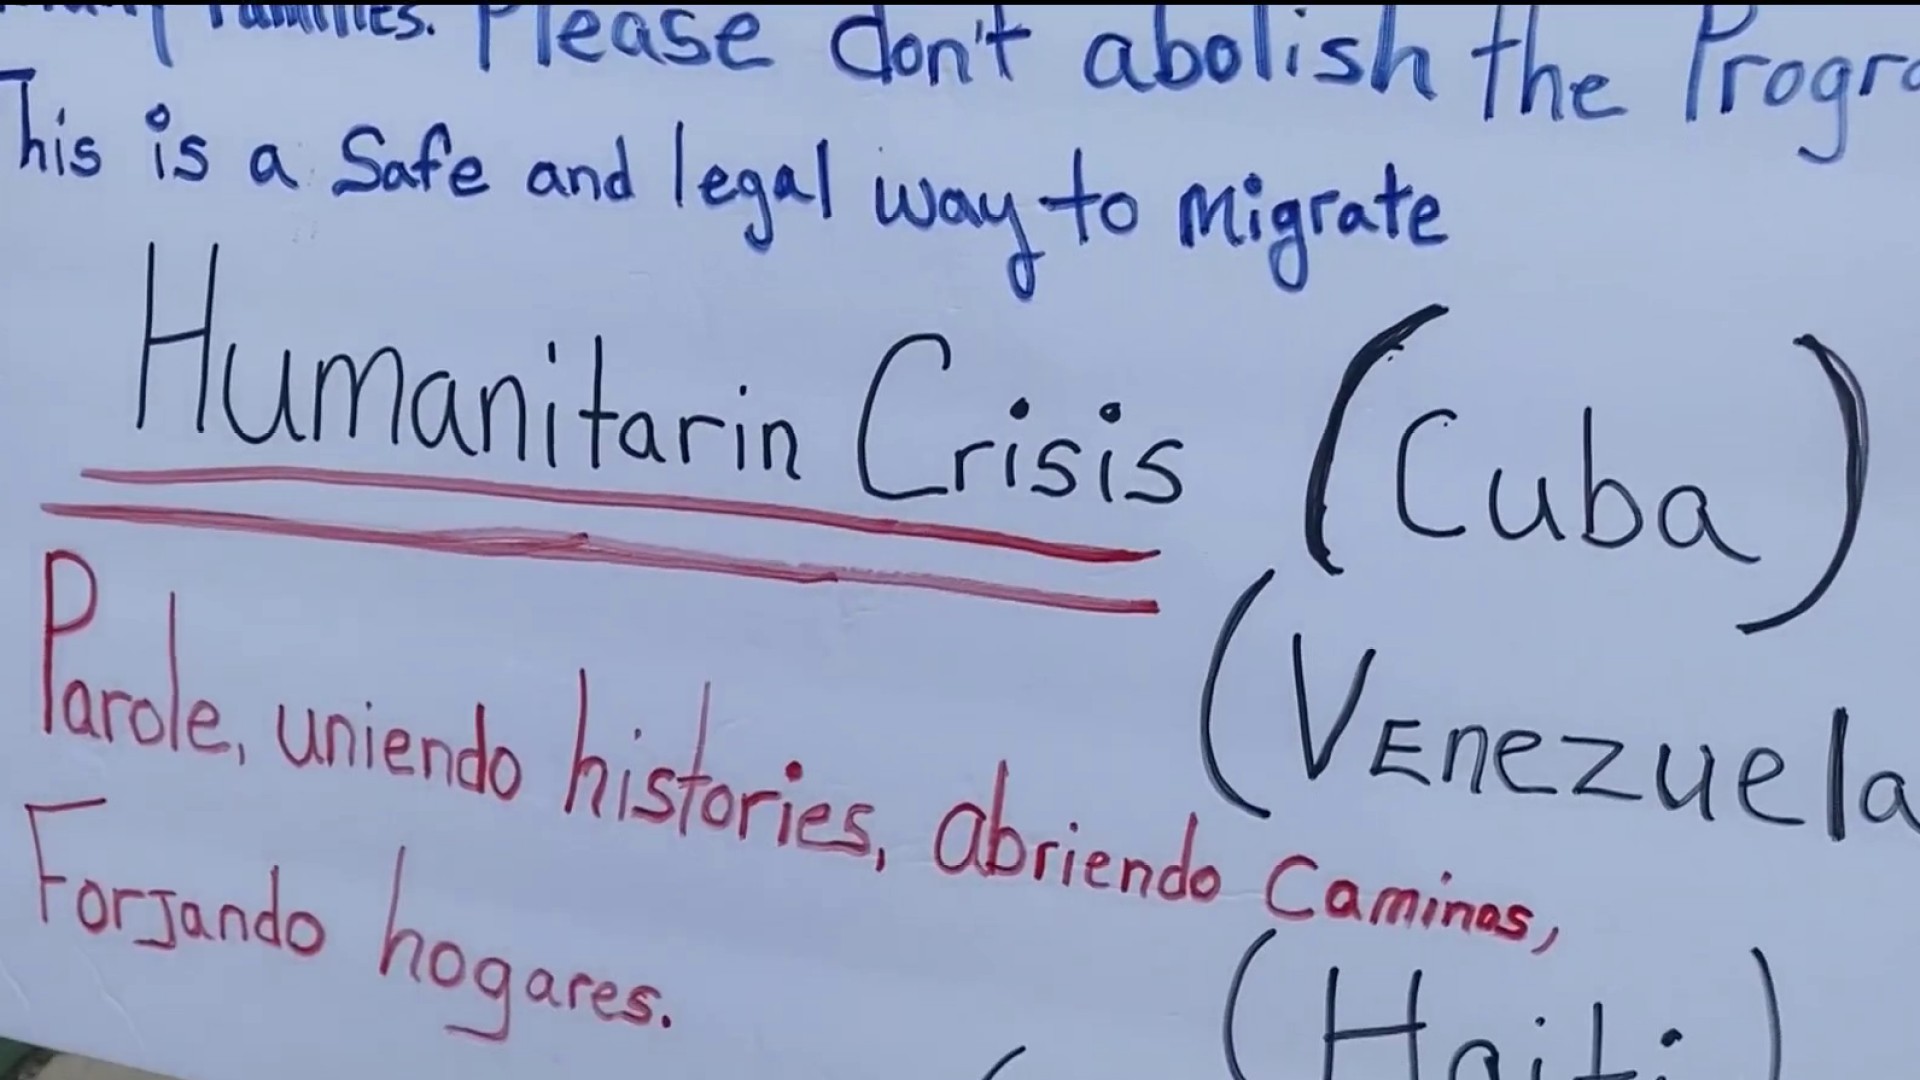 families. Please don't abolish the Progra
This is a Safe and legal way to migrate
Humanitarin Crisis (Cuba)
(VEnezuela
Parole, uniendo histories, abriendo Caminos,
Forjando hogares.
(Haiti)